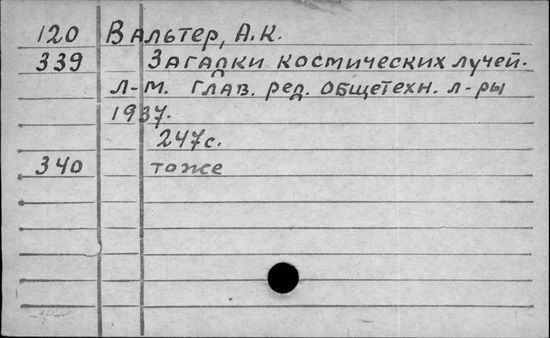 120 Вальтер, А.К.
339 Загадки космических лучей.
Л-М. Глав. ред. общетехн. л-ры
1937.
247с.
340 тоже